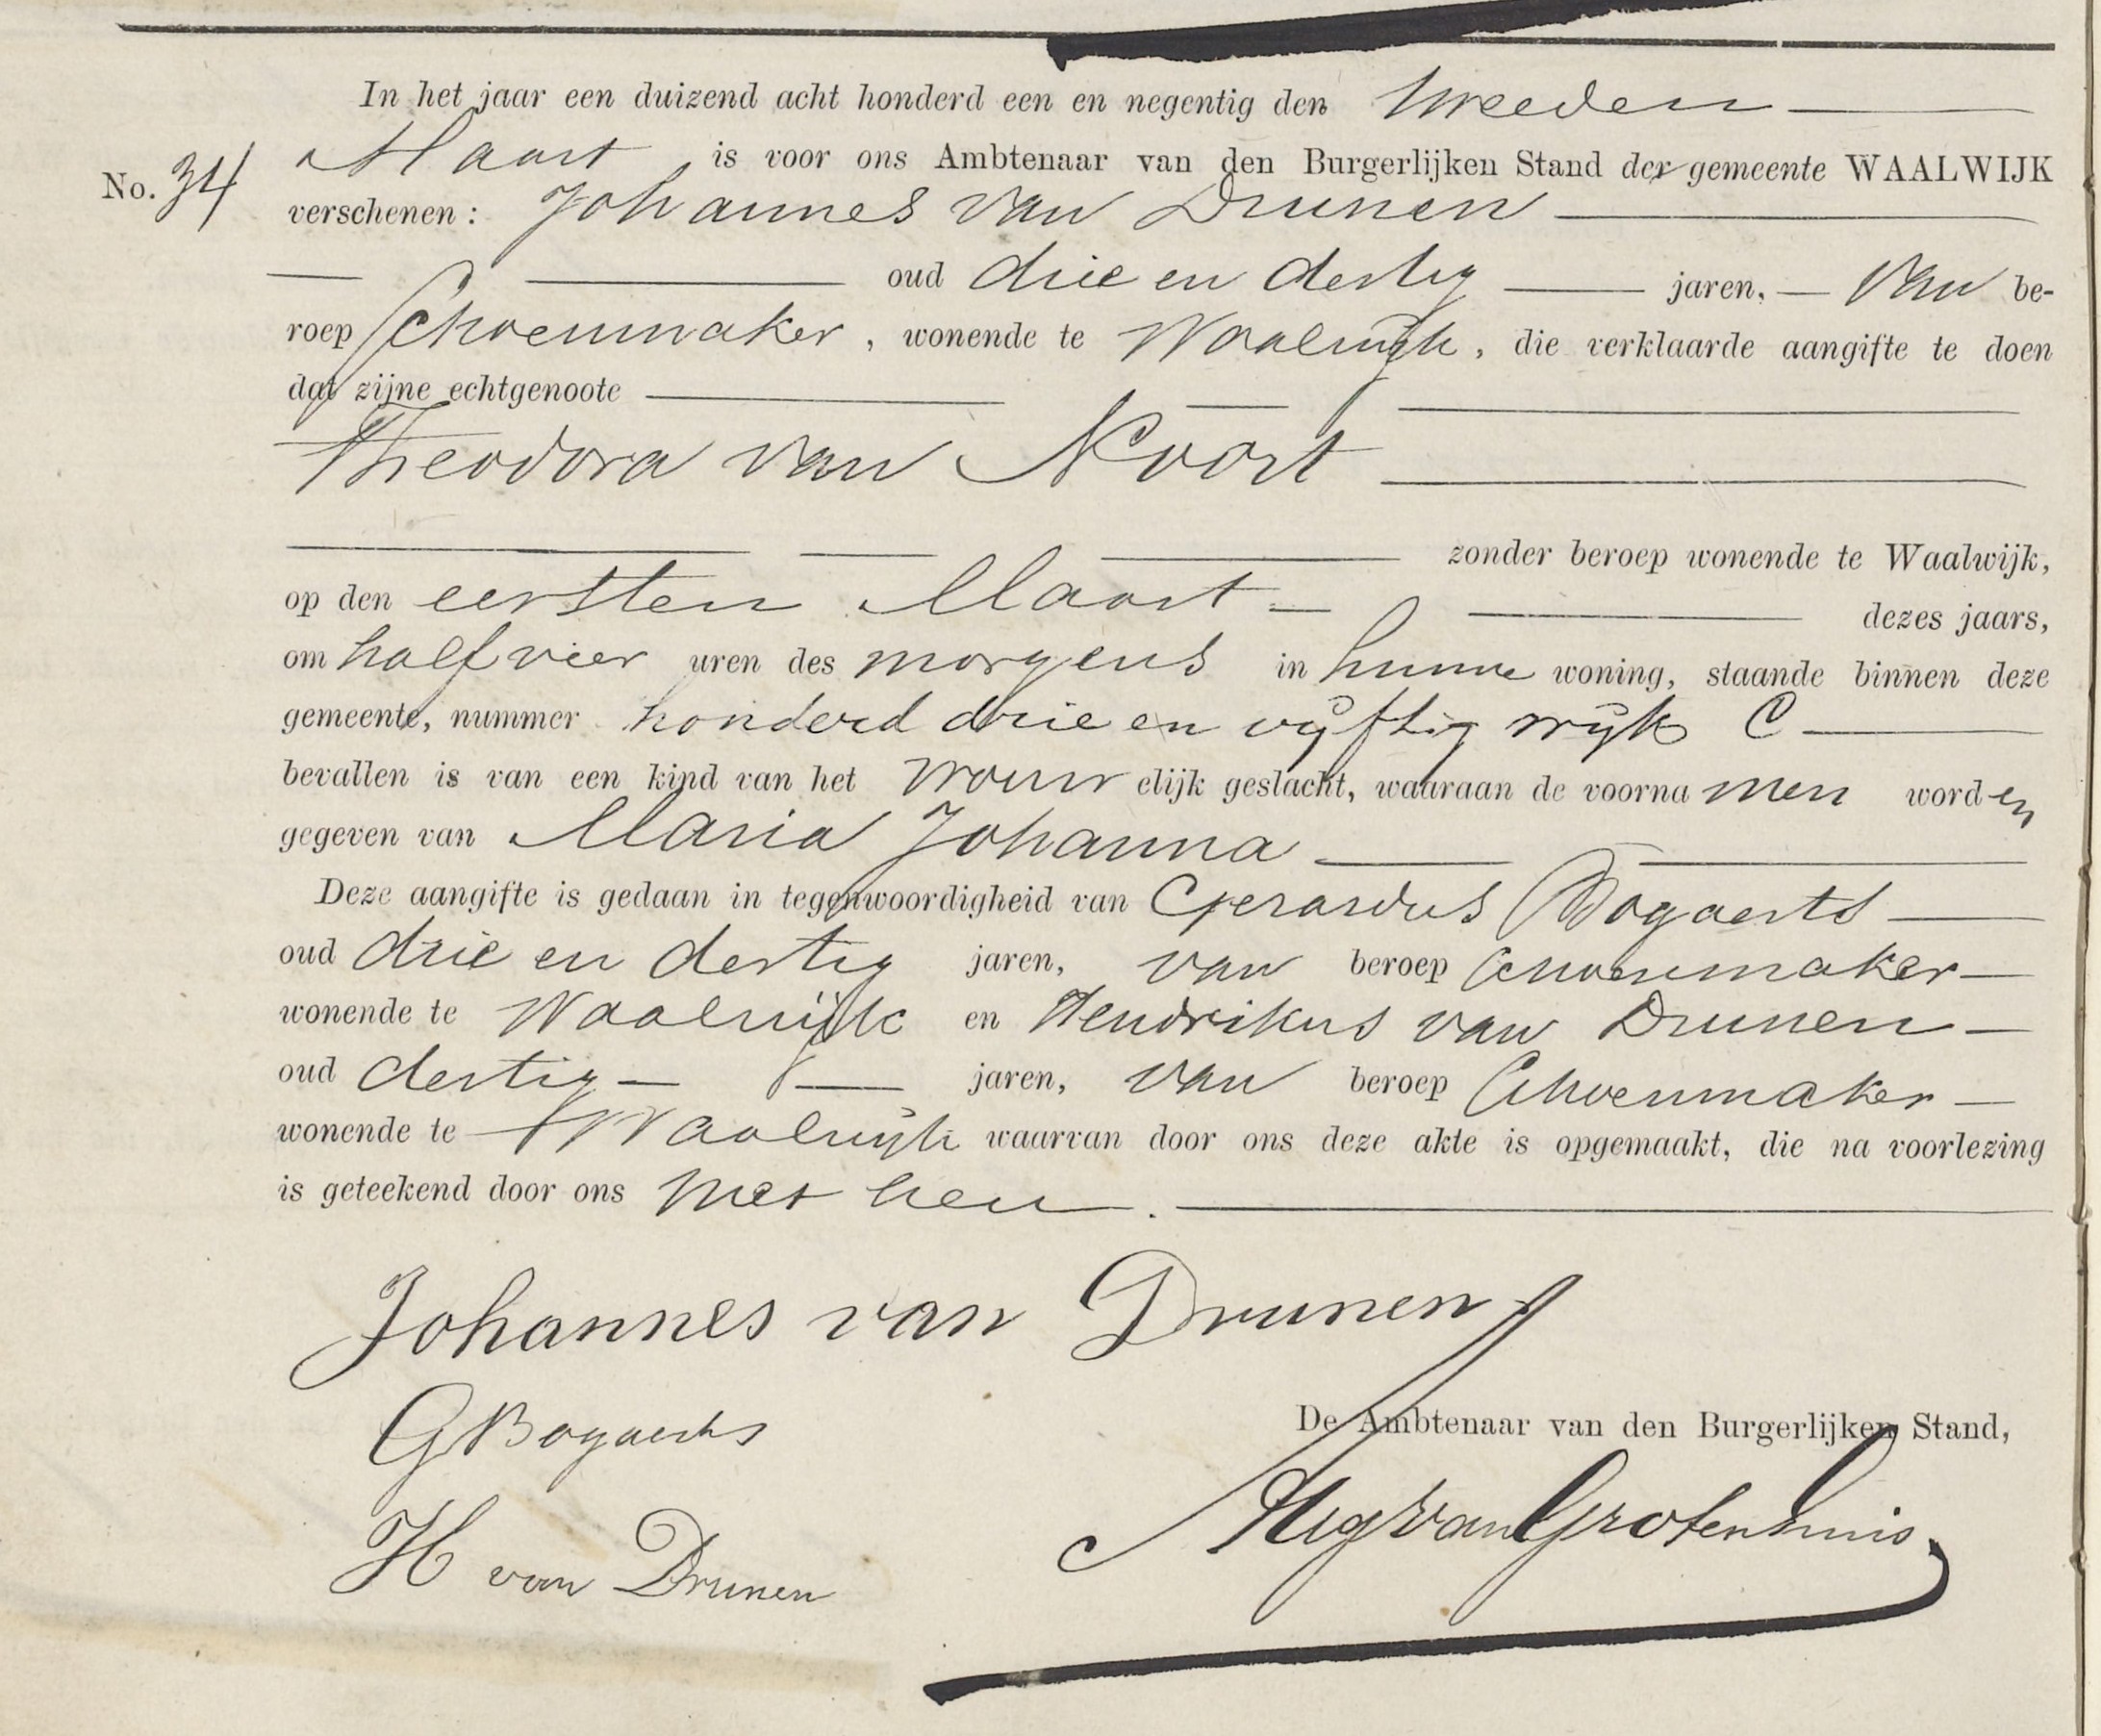 In het jaar een duizend acht honderd een en negentig den tweeden
No. 34 Maart is voor ons Ambtenaar van den Burgerlijken Stand der gemeente WAALWIJK
verschenen: Johannes van Drunen
oud drie en dertig jaren, van be-
roep Schoenmaker, wonende te Waalwijk, die verklaarde aangifte te doen
dat zijne echtgenoote
Theodora van Noort
zonder beroep wonende te Waalwijk,
op den eersten Maart dezes jaars,
om half vier uren des morgens in hunne woning, staande binnen deze
gemeente, nummer honderd drie en vijftig wijk C
bevallen is van een kind van het vrouwelijk geslacht, waaraan de voornamen worden
gegeven van Maria Johanna
Deze aangifte is gedaan in tegenwoordigheid van Gerardus Bogaerts
oud drie en dertig jaren, van beroep Schoenmaker
wonende te Waalwijk en Hendrikus van Drunen
oud dertig jaren, van beroep Schoenmaker
wonende te Waalwijk waarvan door ons deze akte is opgemaakt, die na voorlezing
is geteekend door ons met hen.
Johannes van Drunen
GBogaerts
De Ambtenaar van den Burgerlijken Stand,
van Grotenhuis
H van Drunen